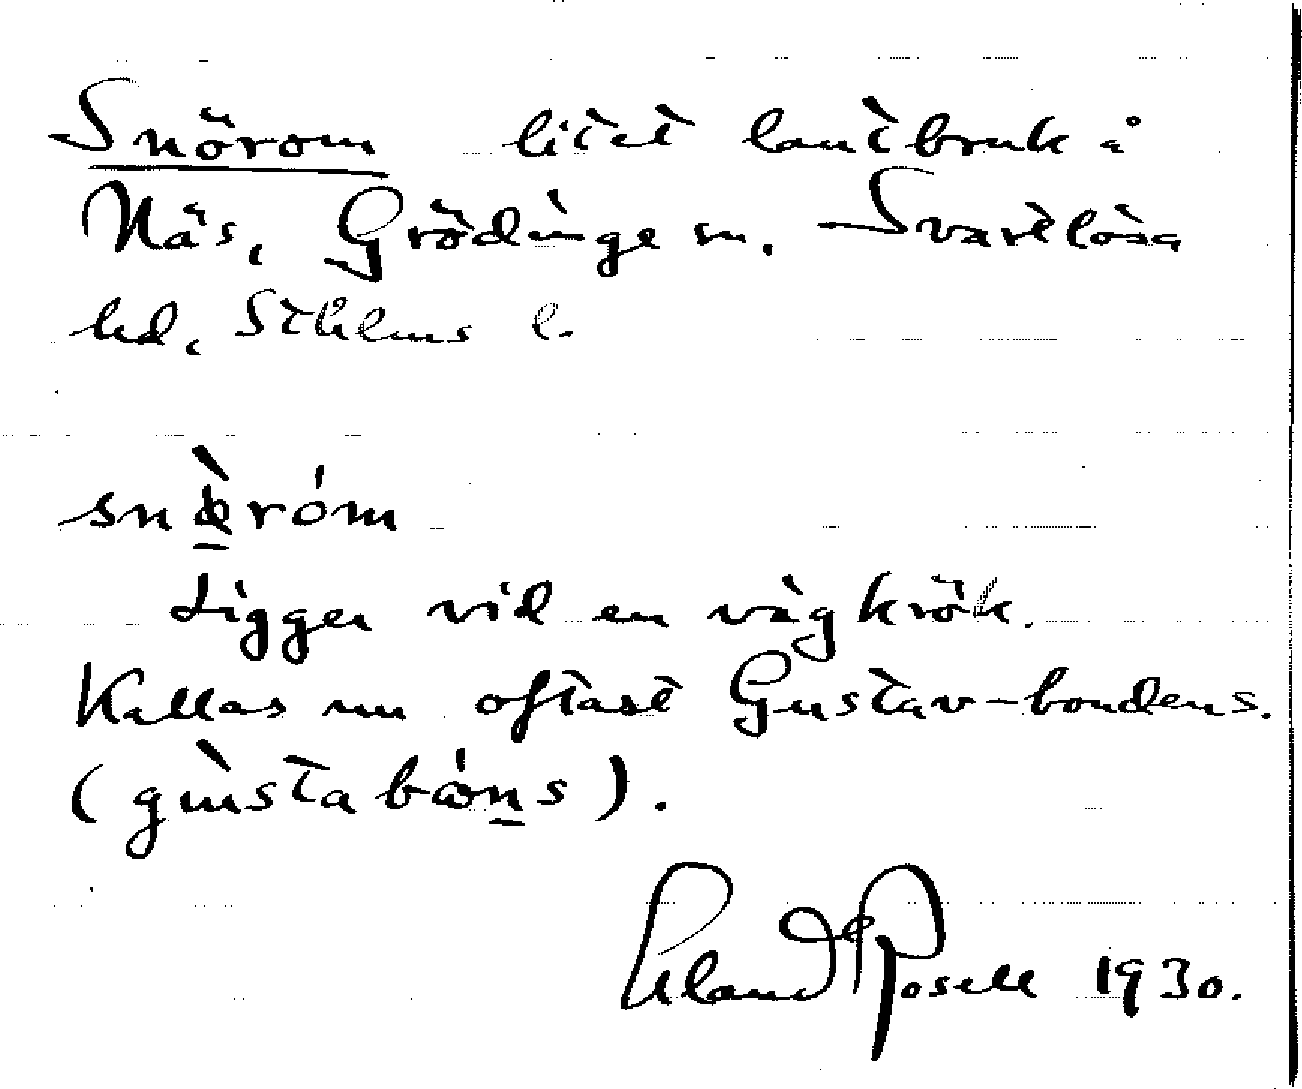 Snörom litet lantbruk å
Näs, Grödinge sn. Svartlösa
hd, Sthlms l.
snø̀róm
Ligger vid en vägkrök.
Kallas nu oftast Gustav-bondens.
(gùstabóns).
Erland Rosell 1930.